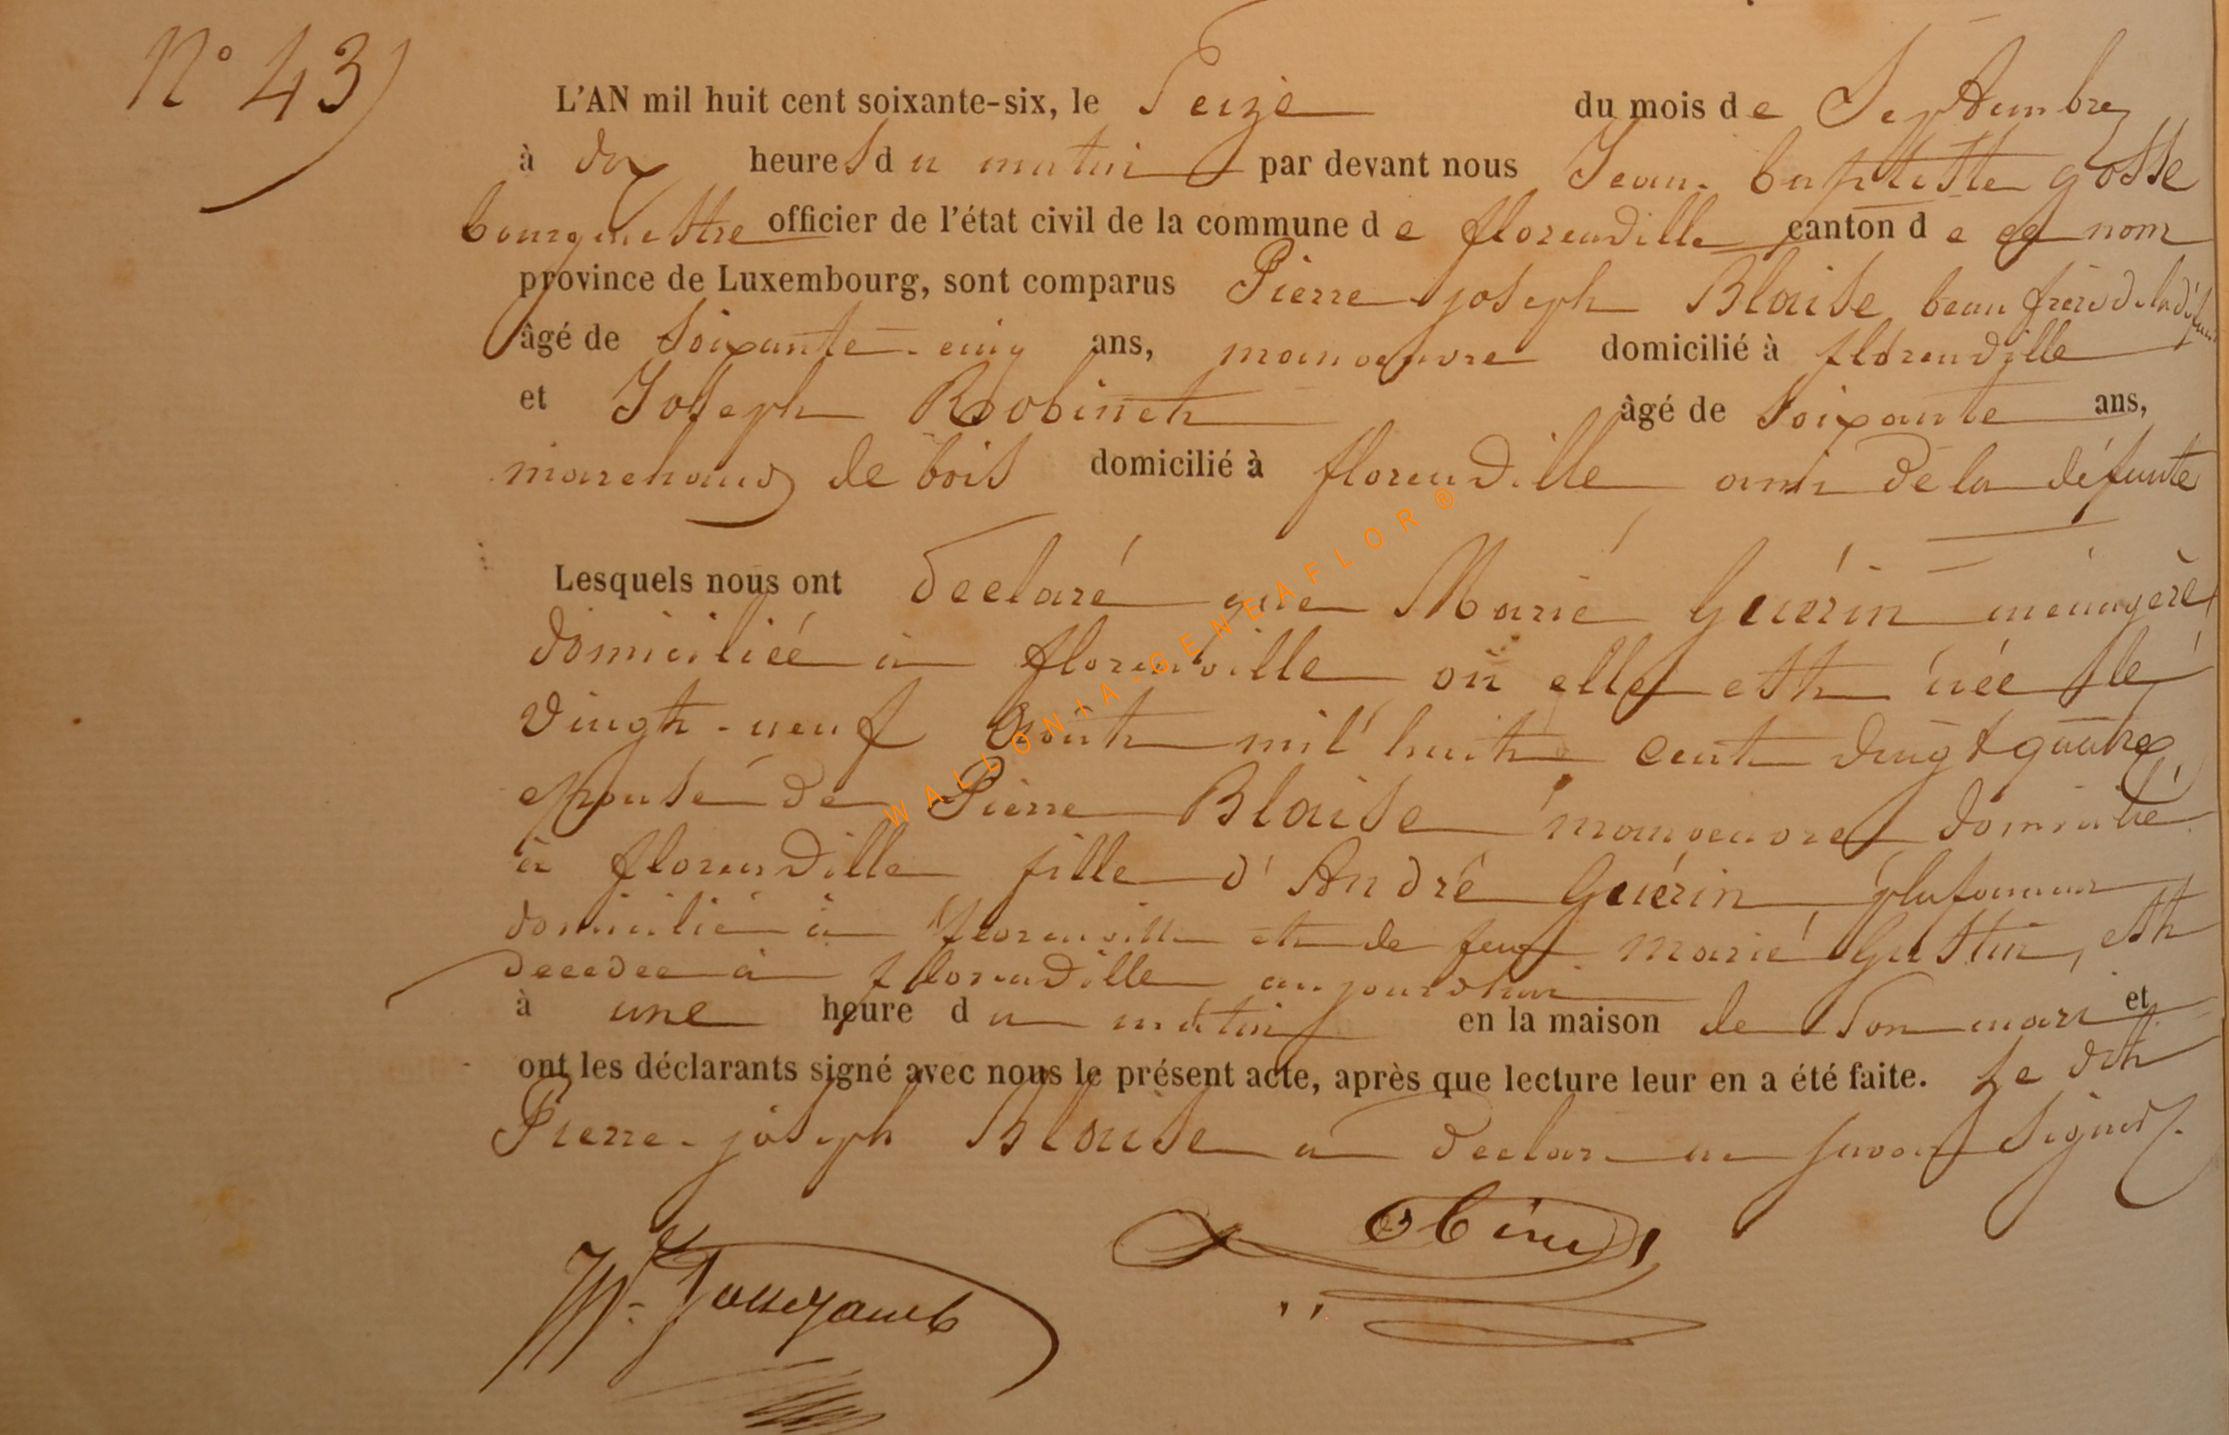 N° 43
L'AN mil huit cent soixante-six, le Seize du mois de Septembre
à dix heures du matin par devant nous Jean-baptiste gosse
bourgmestre officier de l'état civil de la commune de florenville canton de ce nom
province de Luxembourg, sont comparus Pierre-joseph Blaise beau frère de la défunte
âgé de soixante-cinq ans, manoeuvre domicilié à florenville
et Joseph Robinet âgé de soixante ans,
marchand de bois domicilié à florenville ami de la défunte
Lesquels nous ont declaré que Marie Guérin ménagère
domiciliée à florenville où elle est née le
vingt-neuf août mil huit cent vingt quatre
epouse de Pierre Blaise manoeuvre domicilié
à florenville fille d'André Guérin plafonneur
domicilié à florenville et de feue marie Gustin, est
decedee à florenville aujourdhui
à une heure du matin en la maison de son mari et
ont les déclarants signé avec nous le présent acte, après que lecture leur en a été faite. Le dit
Pierre-joseph Blaise a declaré ne savoir signer.
WALLONIA-GENEAFLOR®